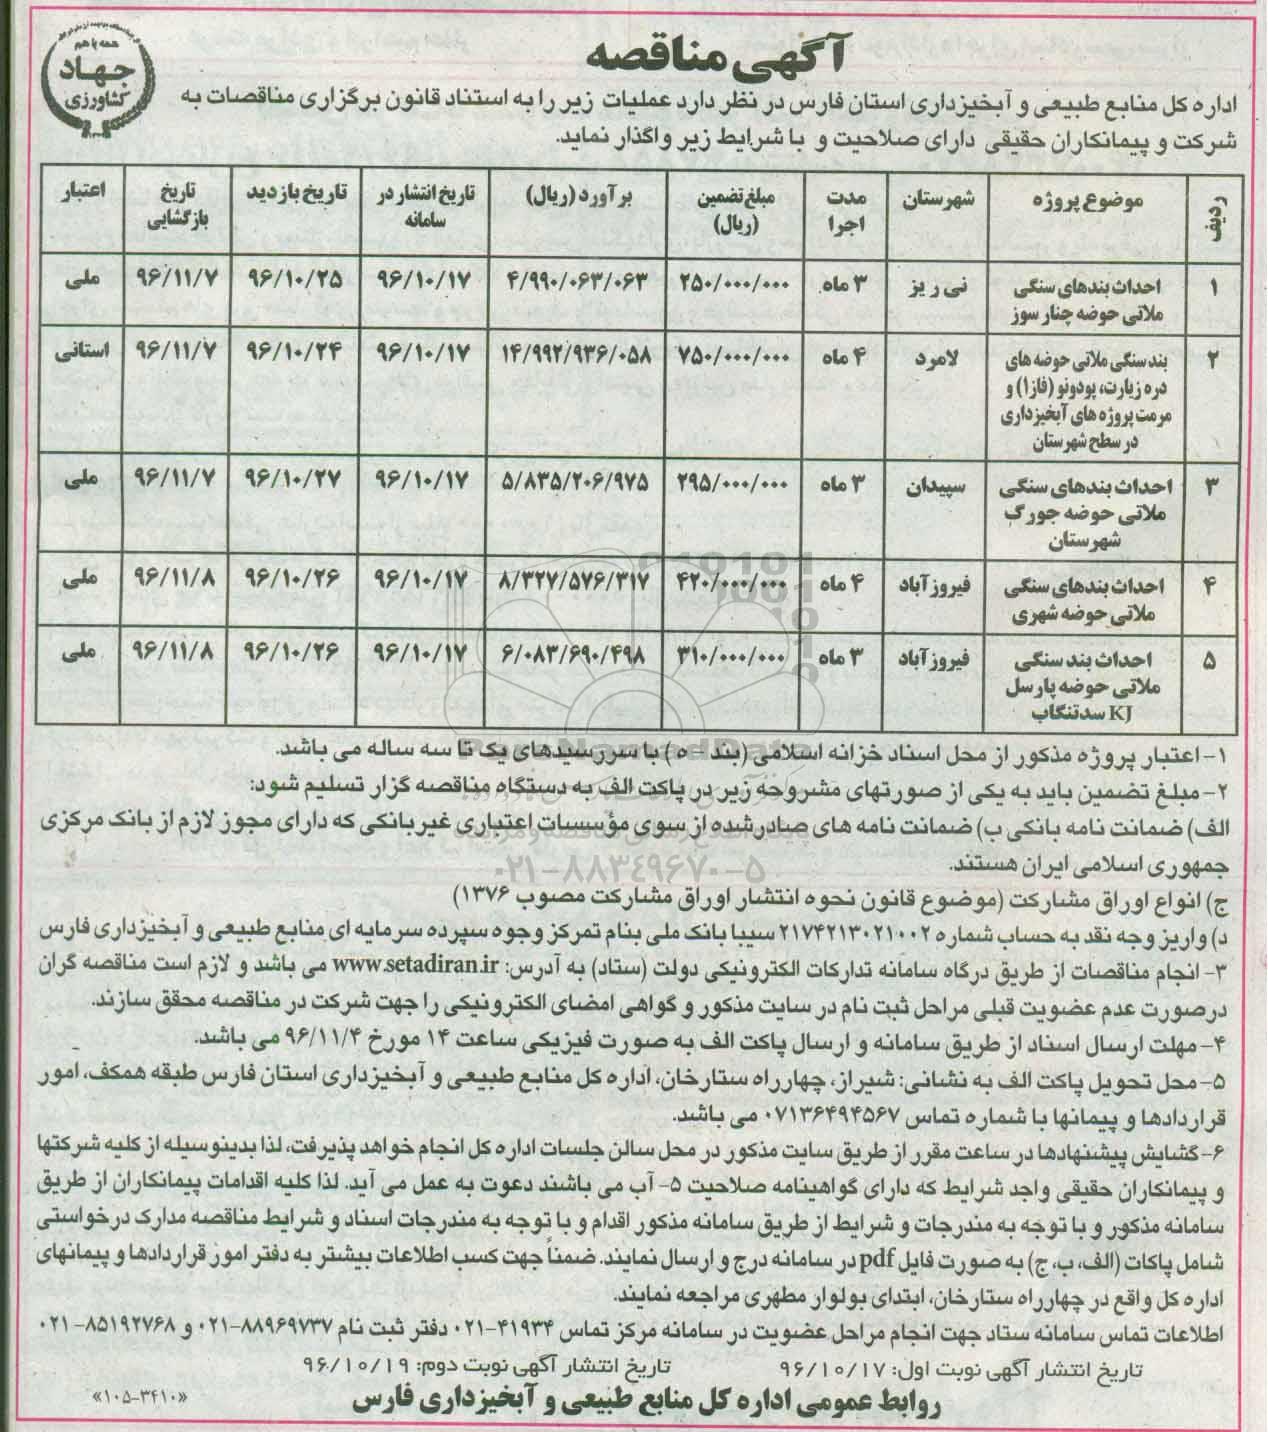 همه با هم
جهاد
کشاورزی
آگهی مناقصه
اداره کل منابع طبیعی و آبخیزداری استان فارس در نظر دارد عملیات زیر را به استناد قانون برگزاری مناقصات به
شرکت و پیمانکاران حقیقی دارای صلاحیت و با شرایط زیر واگذار نماید.
ردیف | موضوع پروژه | شهرستان | مدت اجرا | مبلغ تضمین (ریال) | برآورد (ریال) | تاریخ انتشار در سامانه | تاریخ بازدید | تاریخ بازگشایی | اعتبار
۱ | احداث بندهای سنگی ملاتی حوضه چنار سوز | نی ریز | ۳ ماه | ۲۵۰/۰۰۰/۰۰۰ | ۴/۹۹۰/۰۶۳/۰۶۳ | ۹۶/۱۰/۱۷ | ۹۶/۱۰/۲۵ | ۹۶/۱۱/۷ | ملی
۲ | بند سنگی ملاتی حوضه های دره زیارت، پودونو (فاز۱) و مرمت پروژه های آبخیزداری در سطح شهرستان | لامرد | ۴ ماه | ۷۵۰/۰۰۰/۰۰۰ | ۱۴/۹۹۲/۹۳۶/۰۵۸ | ۹۶/۱۰/۱۷ | ۹۶/۱۰/۲۴ | ۹۶/۱۱/۷ | استانی
۳ | احداث بندهای سنگی ملاتی حوضه جورگ شهرستان | سپیدان | ۳ ماه | ۲۹۵/۰۰۰/۰۰۰ | ۵/۸۳۵/۲۰۶/۹۷۵ | ۹۶/۱۰/۱۷ | ۹۶/۱۰/۲۷ | ۹۶/۱۱/۷ | ملی
۴ | احداث بندهای سنگی ملاتی حوضه شهری | فیروزآباد | ۴ ماه | ۴۲۰/۰۰۰/۰۰۰ | ۸/۳۲۷/۵۷۶/۳۱۷ | ۹۶/۱۰/۱۷ | ۹۶/۱۰/۲۶ | ۹۶/۱۱/۸ | ملی
۵ | احداث بند سنگی ملاتی حوضه پارسل KJ سدتنگاب | فیروزآباد | ۳ ماه | ۳۱۰/۰۰۰/۰۰۰ | ۶/۰۸۳/۶۹۰/۴۹۸ | ۹۶/۱۰/۱۷ | ۹۶/۱۰/۲۶ | ۹۶/۱۱/۸ | ملی
۱- اعتبار پروژه مذکور از محل اسناد خزانه اسلامی (بند - ه) با سررسیدهای یک تا سه ساله می باشد.
۲- مبلغ تضمین باید به یکی از صورتهای مشروحه زیر در پاکت الف به دستگاه مناقصه گزار تسلیم شود:
الف) ضمانت نامه بانکی ب) ضمانت نامه های صادر شده از سوی مؤسسات اعتباری غیر بانکی که دارای مجوز لازم از بانک مرکزی
جمهوری اسلامی ایران هستند.
۰۲۱-۸۸۳۴۹۶۷۰-۵
ج) انواع اوراق مشارکت (موضوع قانون نحوه انتشار اوراق مشارکت مصوب ۱۳۷۶)
د) واریز وجه نقد به حساب شماره ۲۱۷۴۲۱۳۰۲۱۰۰۲ سیبا بانک ملی بنام تمرکز وجوه سپرده سرمایه ای منابع طبیعی و آبخیزداری فارس
۳- انجام مناقصات از طریق درگاه سامانه تدارکات الکترونیکی دولت (ستاد) به آدرس: www.setadiran.ir می باشد و لازم است مناقصه گران
درصورت عدم عضویت قبلی مراحل ثبت نام در سایت مذکور و گواهی امضای الکترونیکی را جهت شرکت در مناقصه محقق سازند.
۴- مهلت ارسال اسناد از طریق سامانه و ارسال پاکت الف به صورت فیزیکی ساعت ۱۴ مورخ ۹۶/۱۱/۴ می باشد.
۵- محل تحویل پاکت الف به نشانی: شیراز، چهارراه ستارخان، اداره کل منابع طبیعی و آبخیزداری استان فارس طبقه همکف، امور
قراردادها و پیمانها با شماره تماس ۰۷۱۳۶۴۹۴۵۶۷ می باشد.
۶- گشایش پیشنهادها در ساعت مقرر از طریق سایت مذکور در محل سالن جلسات اداره کل انجام خواهد پذیرفت، لذا بدینوسیله از کلیه شرکتها
و پیمانکاران حقیقی واجد شرایط که دارای گواهینامه صلاحیت ۵- آب می باشند دعوت به عمل می آید. لذا کلیه اقدامات پیمانکاران از طریق
سامانه مذکور و با توجه به مندرجات و شرایط از طریق سامانه مذکور اقدام و با توجه به مندرجات اسناد و شرایط مناقصه مدارک درخواستی
شامل پاکات (الف، ب، ج) به صورت فایل pdf در سامانه درج و ارسال نمایند. ضمناً جهت کسب اطلاعات بیشتر به دفتر امور قراردادها و پیمانهای
اداره کل واقع در چهارراه ستارخان، ابتدای بولوار مطهری مراجعه نمایند.
اطلاعات تماس سامانه ستاد جهت انجام مراحل عضویت در سامانه مرکز تماس ۴۱۹۳۴-۰۲۱ دفتر ثبت نام ۸۸۹۶۹۷۳۷-۰۲۱ و ۸۵۱۹۲۷۶۸-۰۲۱
تاریخ انتشار آگهی نوبت اول: ۹۶/۱۰/۱۷ تاریخ انتشار آگهی نوبت دوم: ۹۶/۱۰/۱۹
روابط عمومی اداره کل منابع طبیعی و آبخیزداری فارس
«۱۰۵-۳۴۱۰»